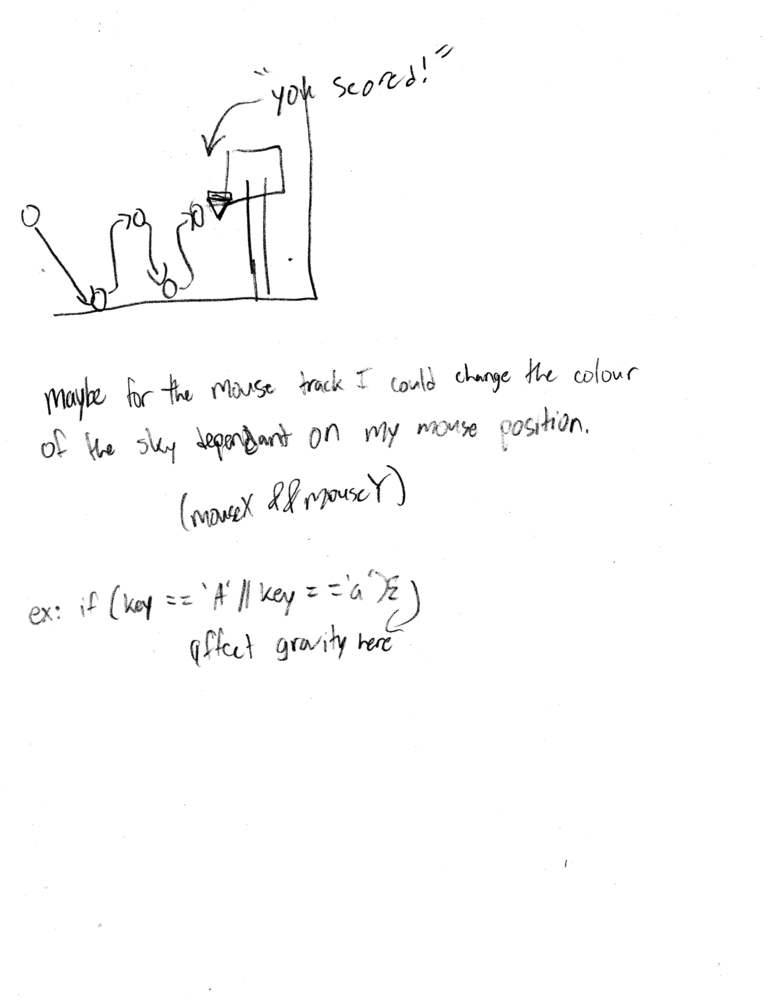 "you scored!"
maybe for the mouse track I could change the colour
of the sky dependant on my mouse position.
(mouseX && mouseY)
ex: if (key == 'A' || key == 'a'){
affect gravity here